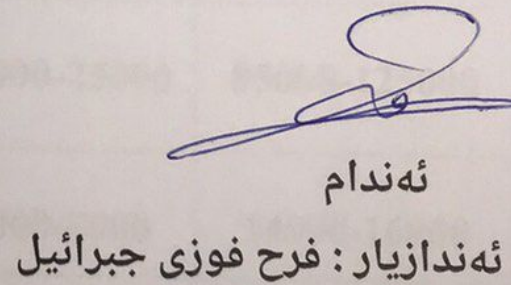 ئەندام
ئەندازیار : فرح فوزی جبرائیل